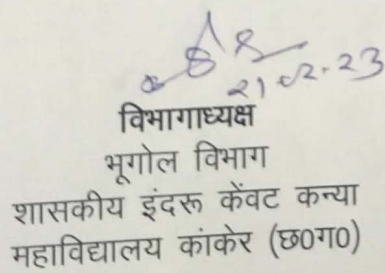 21.02.23
विभागाध्यक्ष
भूगोल विभाग
शासकीय इंदरू केंवट कन्या
महाविद्यालय कांकेर (छ0ग0)